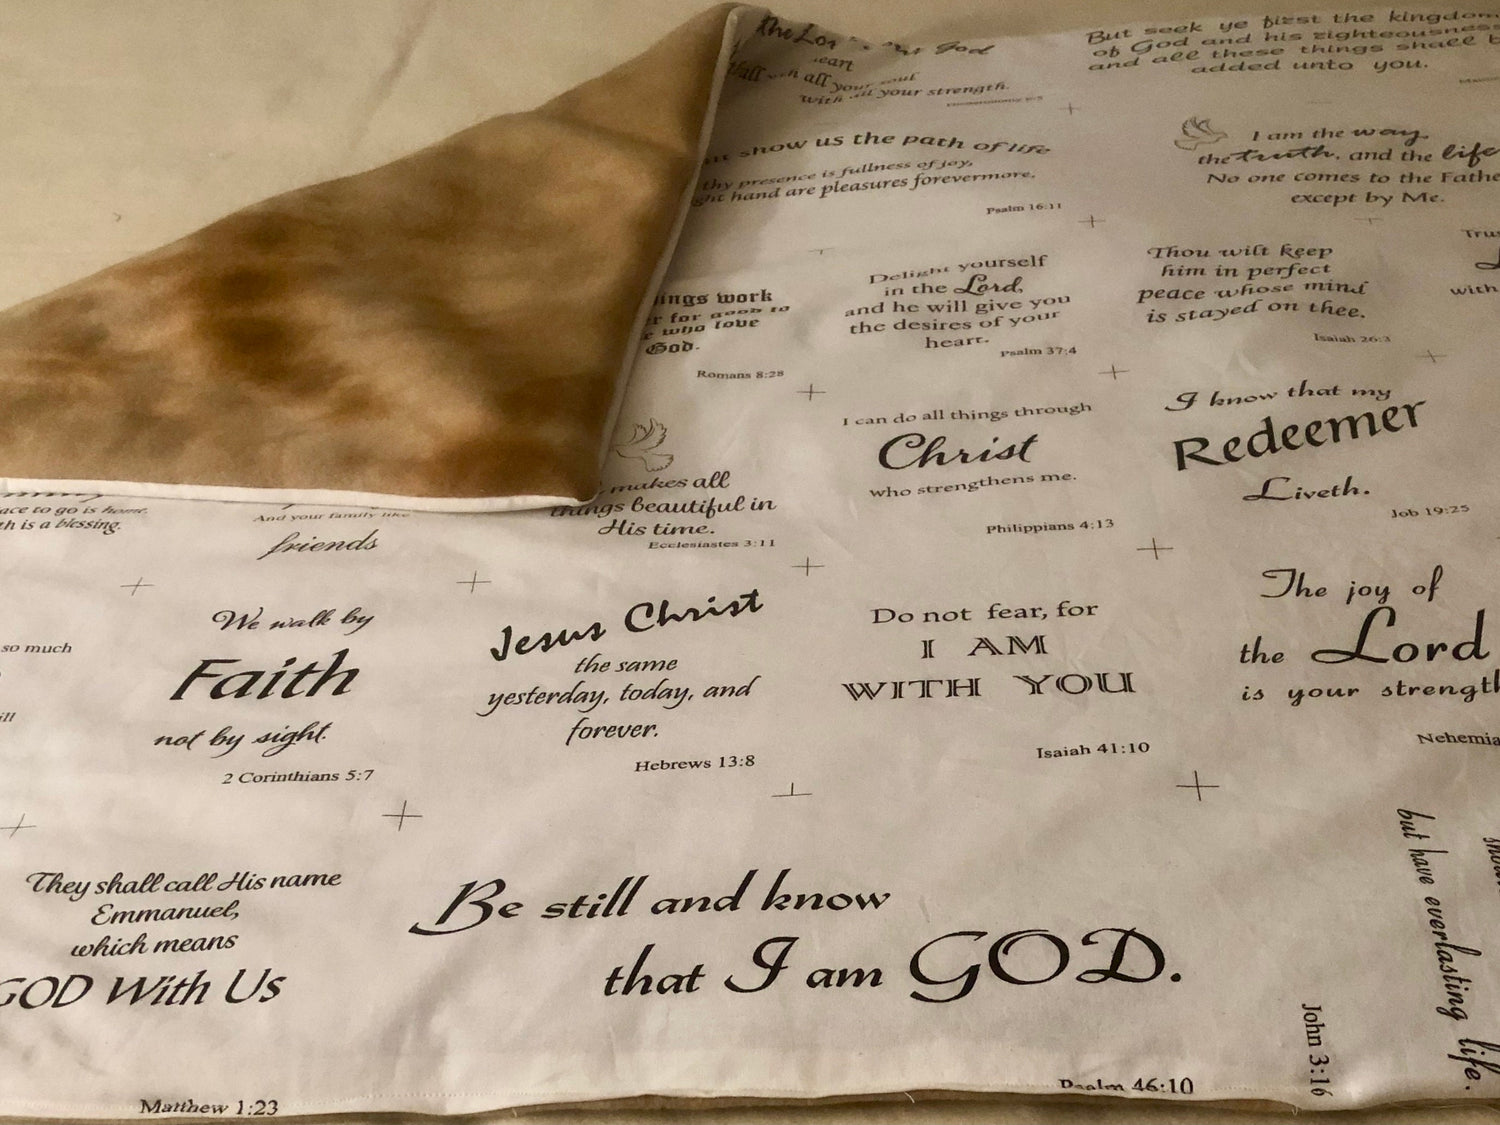 the Lor
God
eart
with all your soul
with all your strength.
But seek ye first the kingdom
of God and his righteousness
and all these things shall b
added unto you.
show us the path of life
thy presence is fullness of joy,
ght hand are pleasures forevermore.
Psalm 16:11
I am the way,
the truth, and the life
No one comes to the Fathe
except by Me.
ings work
r for good to
e who love
God.
Romans 8:28
Delight yourself
in the Lord,
and he will give you
the desires of your
heart.
Psalm 37:4
Thou wilt keep
him in perfect
peace whose mind
is stayed on thee.
Isaiah 26:3
Trus
with
makes all
things beautiful in
His time.
Ecclesiastes 3:11
I can do all things through
Christ
who strengthens me.
Philippians 4:13
I know that my
Redeemer
Liveth.
Job 19:25
ace to go is home.
th is a blessing.
And your family like
friends
so much
ill
We walk by
Faith
not by sight.
2 Corinthians 5:7
Jesus Christ
the same
yesterday, today, and
forever.
Hebrews 13:8
Do not fear, for
I AM
WITH YOU
Isaiah 41:10
The joy of
the Lord
is your strengt
Nehemia
They shall call His name
Emmanuel,
which means
GOD With Us
Matthew 1:23
Be still and know
that I am GOD.
Psalm 46:10
but have everlasting life.
John 3:16